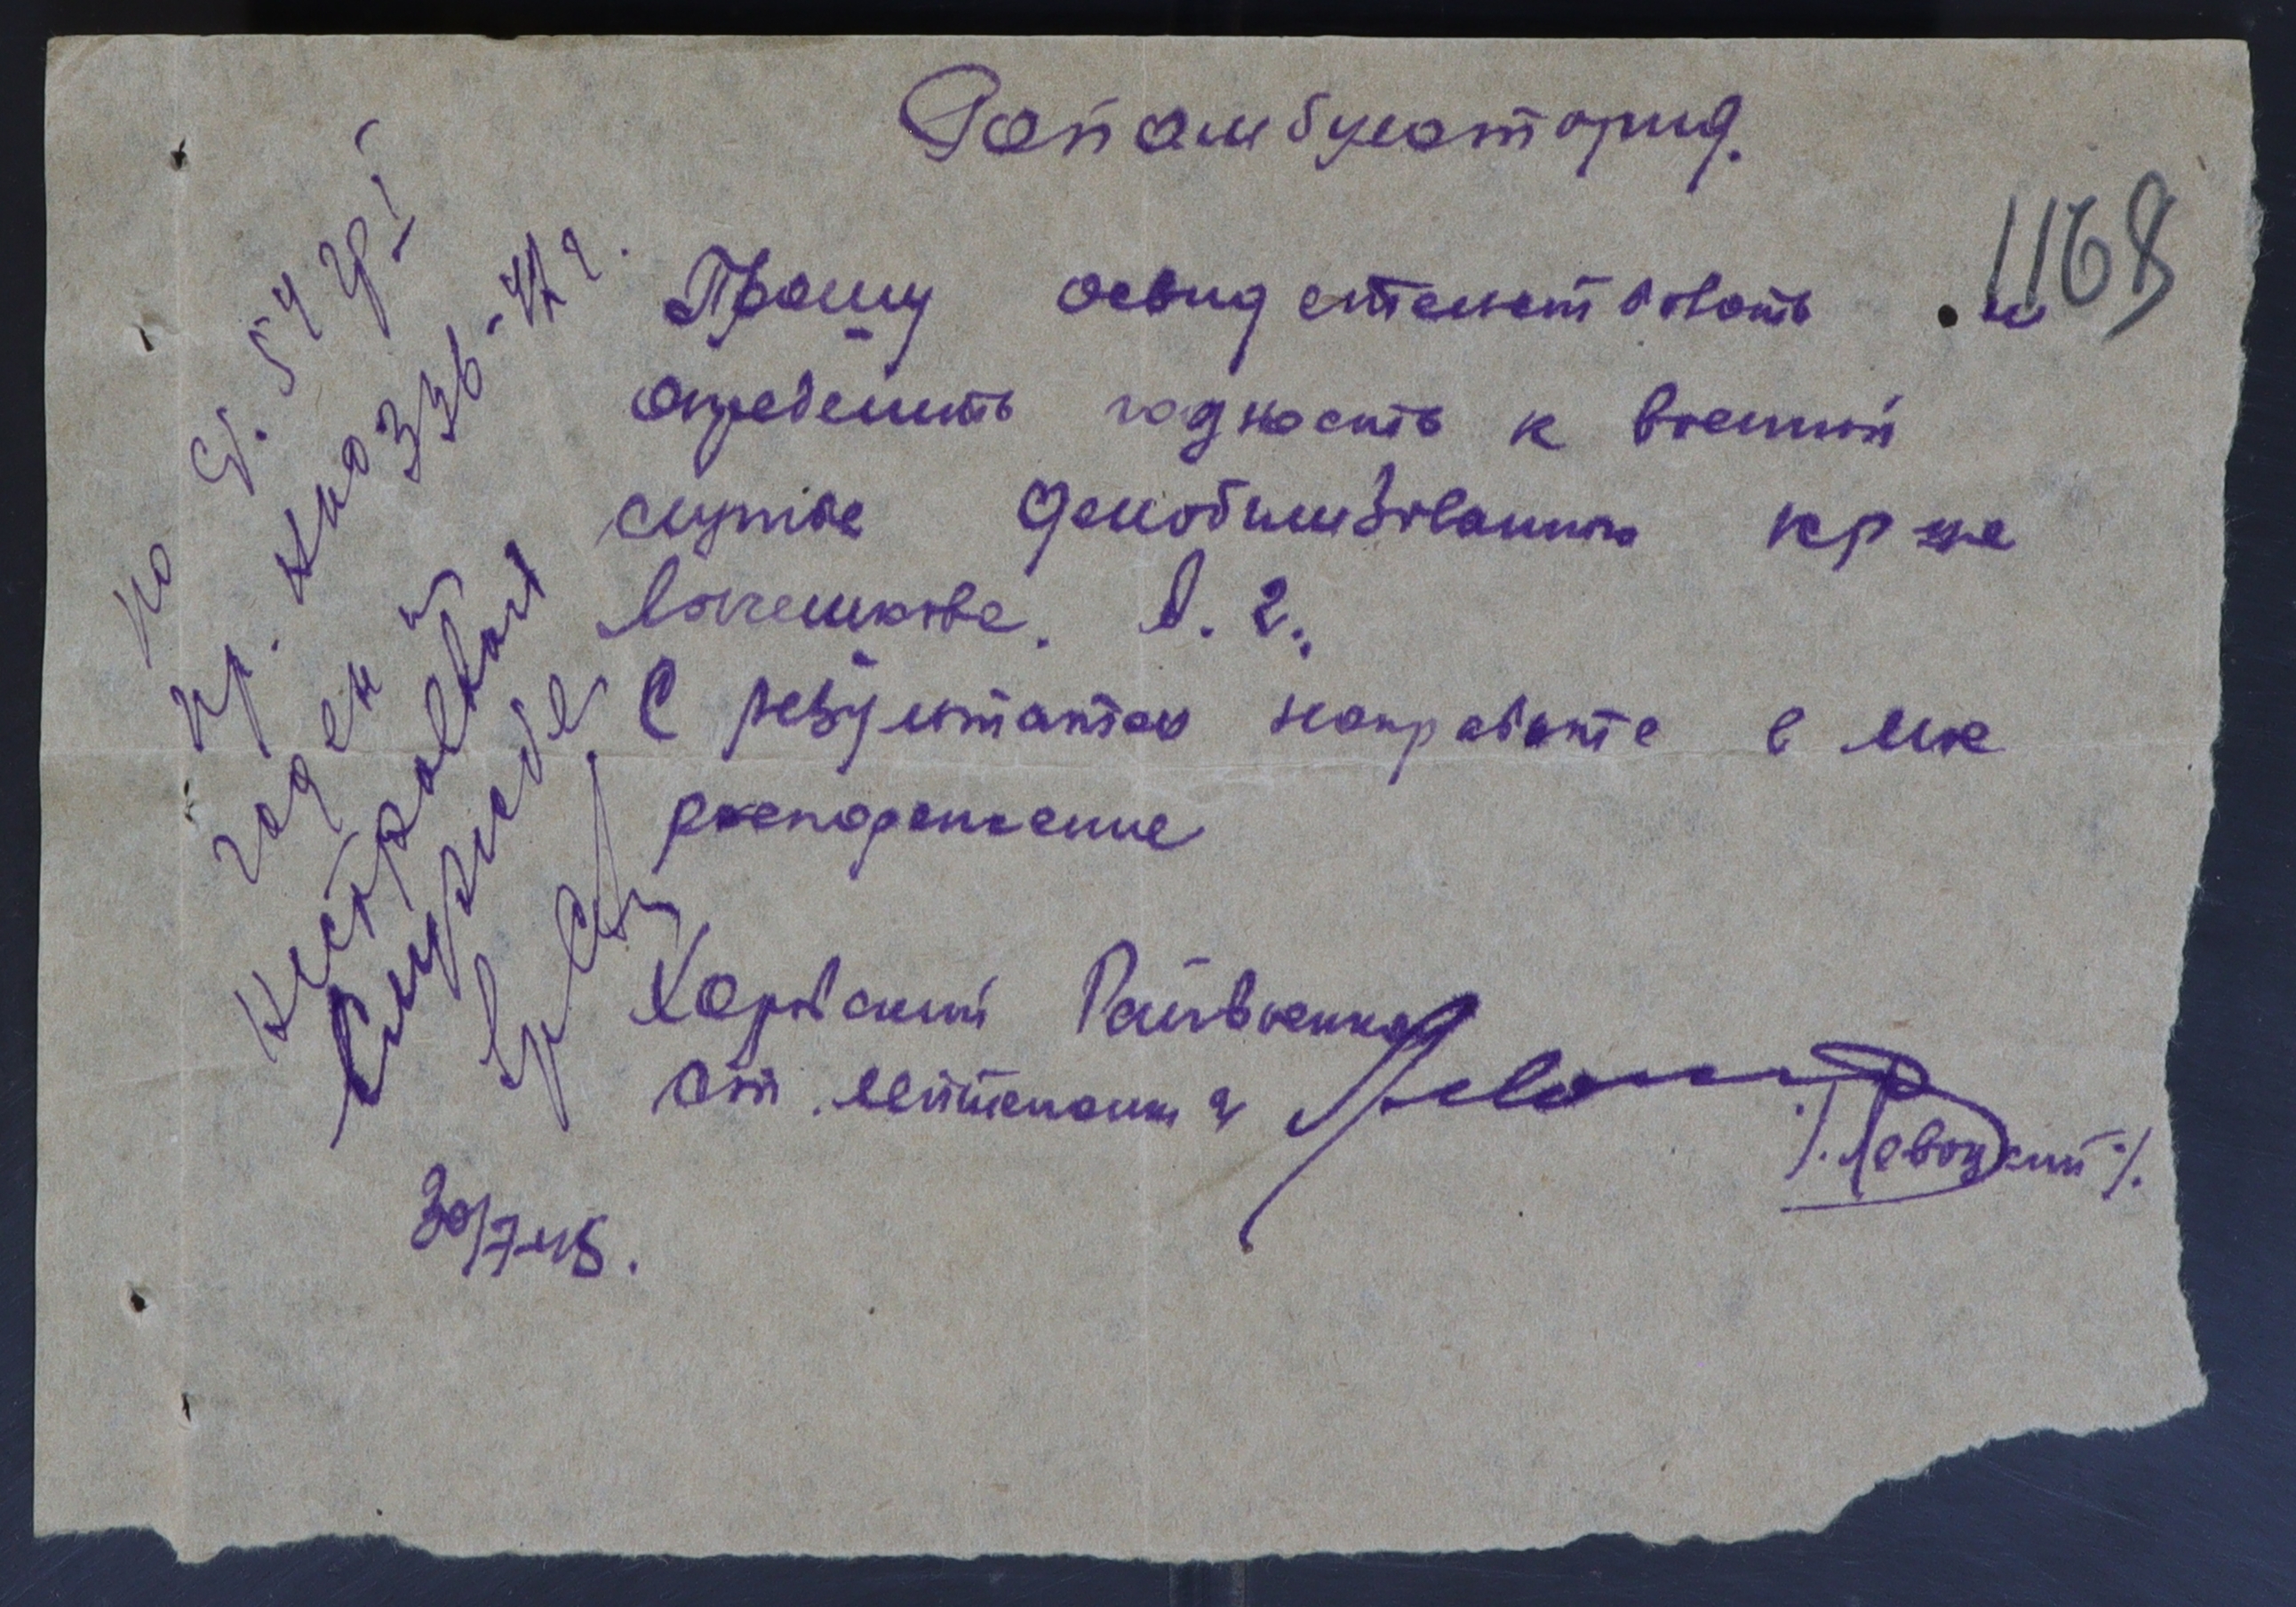 Райамбулатория.
1168
Прошу освидетельствовать и
определить годность к военной
службе демобилизованного кр-ца
В. Г.
С результатом направьте в мое
распоряжение
Харовский Райвоенком
Ст. лейтенант
/. Левоцкий /.
30/7-45.
по ст. 54 гр I
пр. НКО 336-42 г.
годен к
нестроевой
службе
вр